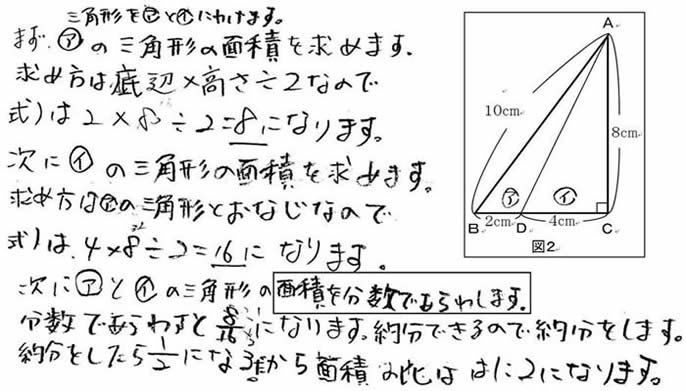 三角形を㋐と㋑にわけます。
まず、㋐の三角形の面積を求めます。
求め方は底辺×高さ÷2なので
式)は2×8÷2=8になります。
次に㋑の三角形の面積を求めます。
求め方は㋐の三角形とおなじなので
式)は、4×8÷2=16になります。
次に㋐と㋑の三角形の面積を分数であらわします。
分数であらわすと8/16になります。約分できるので約分をします。
約分をしたら1/2になるから面積の比は1に2になります。
A
10cm
8cm
㋐ ㋑
B 2cm D 4cm C
図2